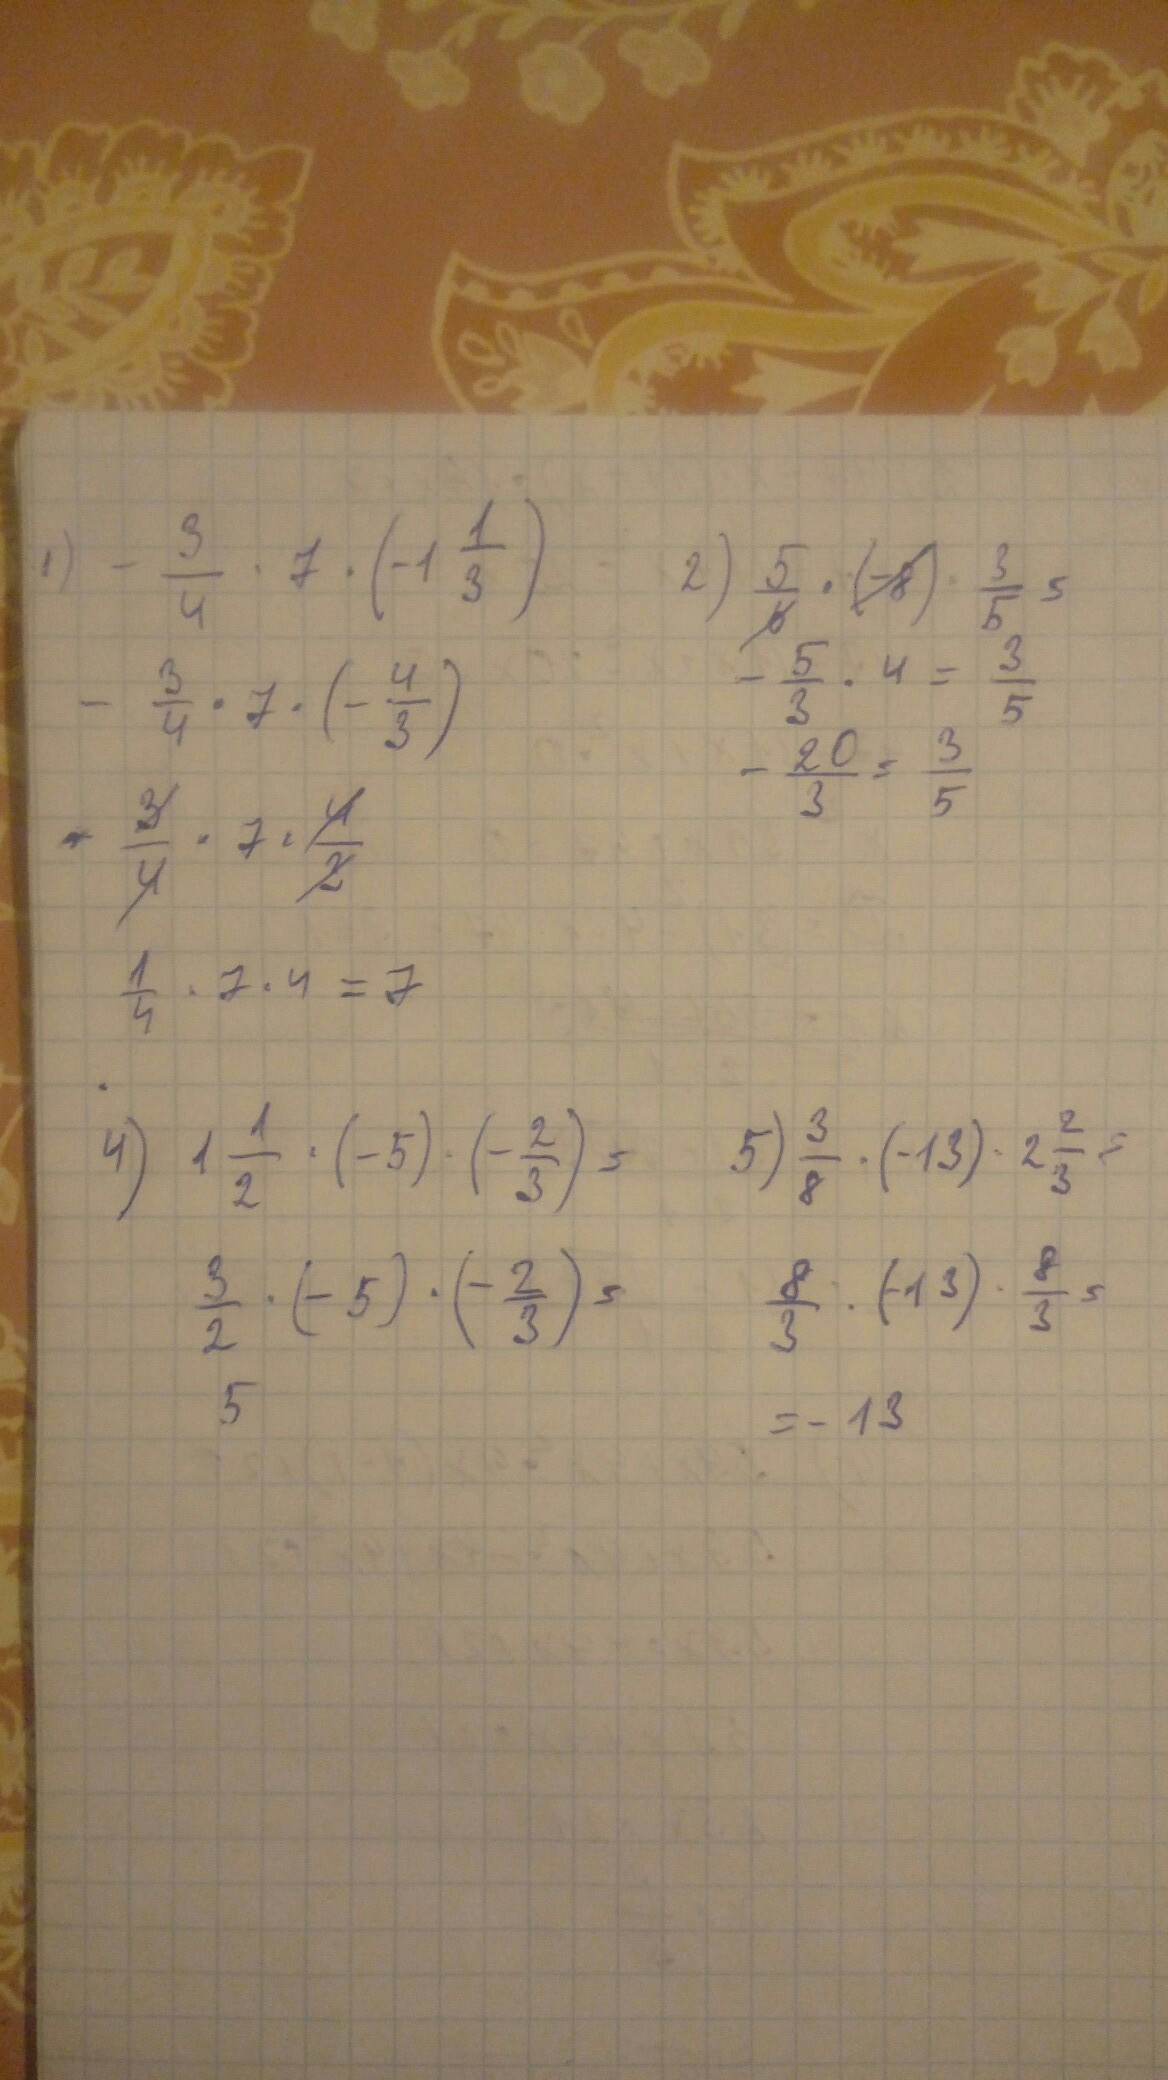 1) - 3/4 · 7 · (-1 1/3)
- 3/4 · 7 · (- 4/3)
3/4 · 7 · 4/2
1/4 · 7 · 4 = 7
2) 5/6 · (-8) · 3/5 =
- 5/3 · 4 = 3/5
- 20/3 = 3/5
4) 1 1/2 · (-5) · (- 2/3) =
3/2 · (-5) · (- 2/3) =
5
5) 3/8 · (-13) · 2 2/3 =
8/3 · (-13) · 8/3 =
= - 13